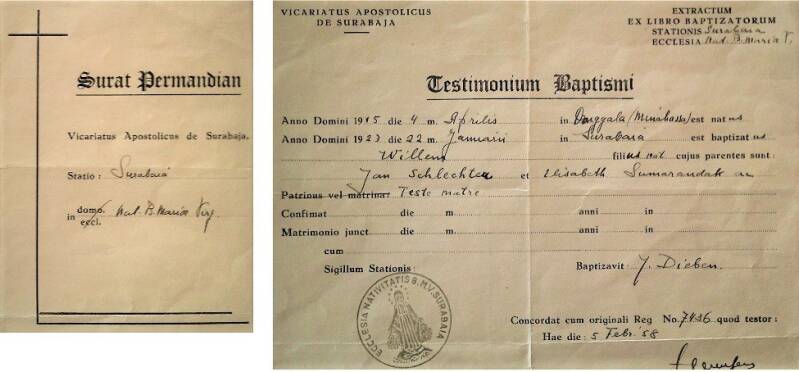 Surat Permandian
Vicariatus Apostolicus de Surabaja.
Statio : Surabaia
in domo. eccl. Nat. B. Maria Virg.
VICARIATUS APOSTOLICUS
DE SURABAJA
EXTRACTUM
EX LIBRO BAPTIZATORUM
STATIONIS Surabaia
ECCLESIA Nat. B. Maria V.
Testimonium Baptismi
Anno Domini 1915 die 4 m. Aprilis in Donggala (Minahassa) est natus
Anno Domini 1923 die 22 m. Januarii in Surabaia est baptizatus
Willem filius nat cujus parentes sunt :
Jan Schlechter et Elisabeth Sumarandak
Patrinus vel matrina: Teste matre
Confimat die m. anni in
Matrimonio junct. die m. anni in
cum
Sigillum Stationis : Baptizavit : J. Dieben.
ECCLESIA NATIVITATIS B.M.V. SURABAIA
Concordat cum originali Reg No. 7436 quod testor :
Hae die : 5 Febr. '58